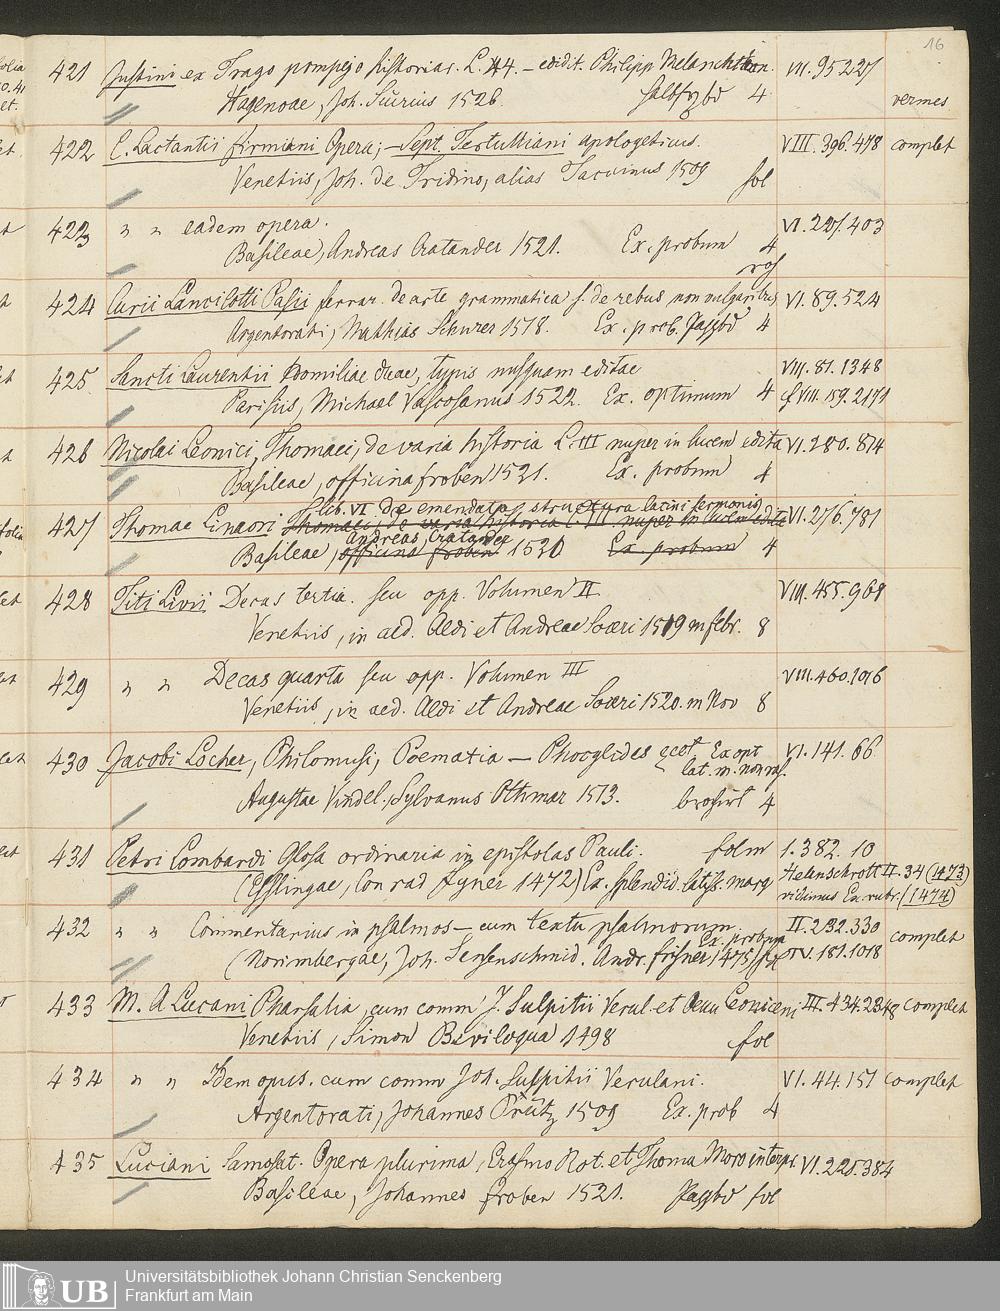 16
421 Justini ex Trago pompejo historias. L. 44. – edidit. Philipp Melanchthon. VII. 95.227
Hagenoae, Joh. 1526 halbfzbd 4 vermes
422 C. Lactantii firmiani Opera; – Sept. Tertulliani apologeticus. VIII. 396.478 complet
Venetiis, Joh. de Tridino, alias Tacuinus 1509 fol
423 " " eadem opera. VI. 227.403
Basileae, Andreas Cratander 1521. Ex. probum 4
424 Curii Lancilotti Pasii ferrar. de arte grammatica s. de rebus non vulgaribus VI. 89.524
Argentorati, Mathias Schurer 1518. Ex. prob. Pappbd 4
425 Sancti Laurentii Homiliae duae, typis nusquam editae VIII. 81.1348
Parisiis, Michael Vascosanus 1522. Ex. optimum 4 cf VIII. 159.2171
426 Nicolai Leonici, Thomaei, de varia historia L. III nuper in lucem edita VI. 280.874
Basileae, officina froben 1521. Ex. probum 4
lib. VI de emendata structura latini sermonis
427 Thomae Linacri Thomaei, de varia historia L. III nuper in lucem edita VI. 276.781
Andreas Cratander
Basileae, officina froben 1530 Ex. probum 4
428 Titi Livii Decas tertia. seu opp. Volumen II VIII. 455.969
Venetiis, in aed. Aldi et Andreae Soceri 1519 m febr. 8
429 " " Decas quarta seu opp. Volumen III VIII. 460.1016
Venetiis, in aed. Aldi et Andreae Soceri 1520. m Nov 8
430 Jacobi Locher, Philomusi, Poematia – Phocylides Ex opt VI. 141.66
lat. m.
Augustae Vindel., Sylvanus Othmar 1513. broschirt 4
431 Petri Lombardi Glosa ordinaria in epistolas Pauli. fol m 1.382.10
(Esslingae, Conrad Fyner 1472) Ex. splendid. latiss. marg Helmschrott II. 34 (1473)
Ex. rubr. (1474)
432 " " Commentarius in psalmos – cum textu psalmorum. II. 232.330 complet
Ex. probum
(Norimbergae, Joh. Sensenschmid. Andr. frisner, 1475) IV. 181.1018
433 M. A Lucani Pharsalia, cum comm J. Sulpitii Verul. et Leoniceni III. 434.2348 complet
Venetiis, Simon Bevilaqua 1498 fol
434 " " Idem opus. cum comm Joh. Sulpitii Verulani. VI. 44.151 complet
Argentorati, Johannes Prütz 1509 Ex. prob 4
435 Luciani Samosat. Opera plurima, Erasmo Rot. et Thoma Moro interpr. VI. 225.384
Basileae, Johannes froben 1521. Pappbd fol
UB
Universitätsbibliothek Johann Christian Senckenberg
Frankfurt am Main